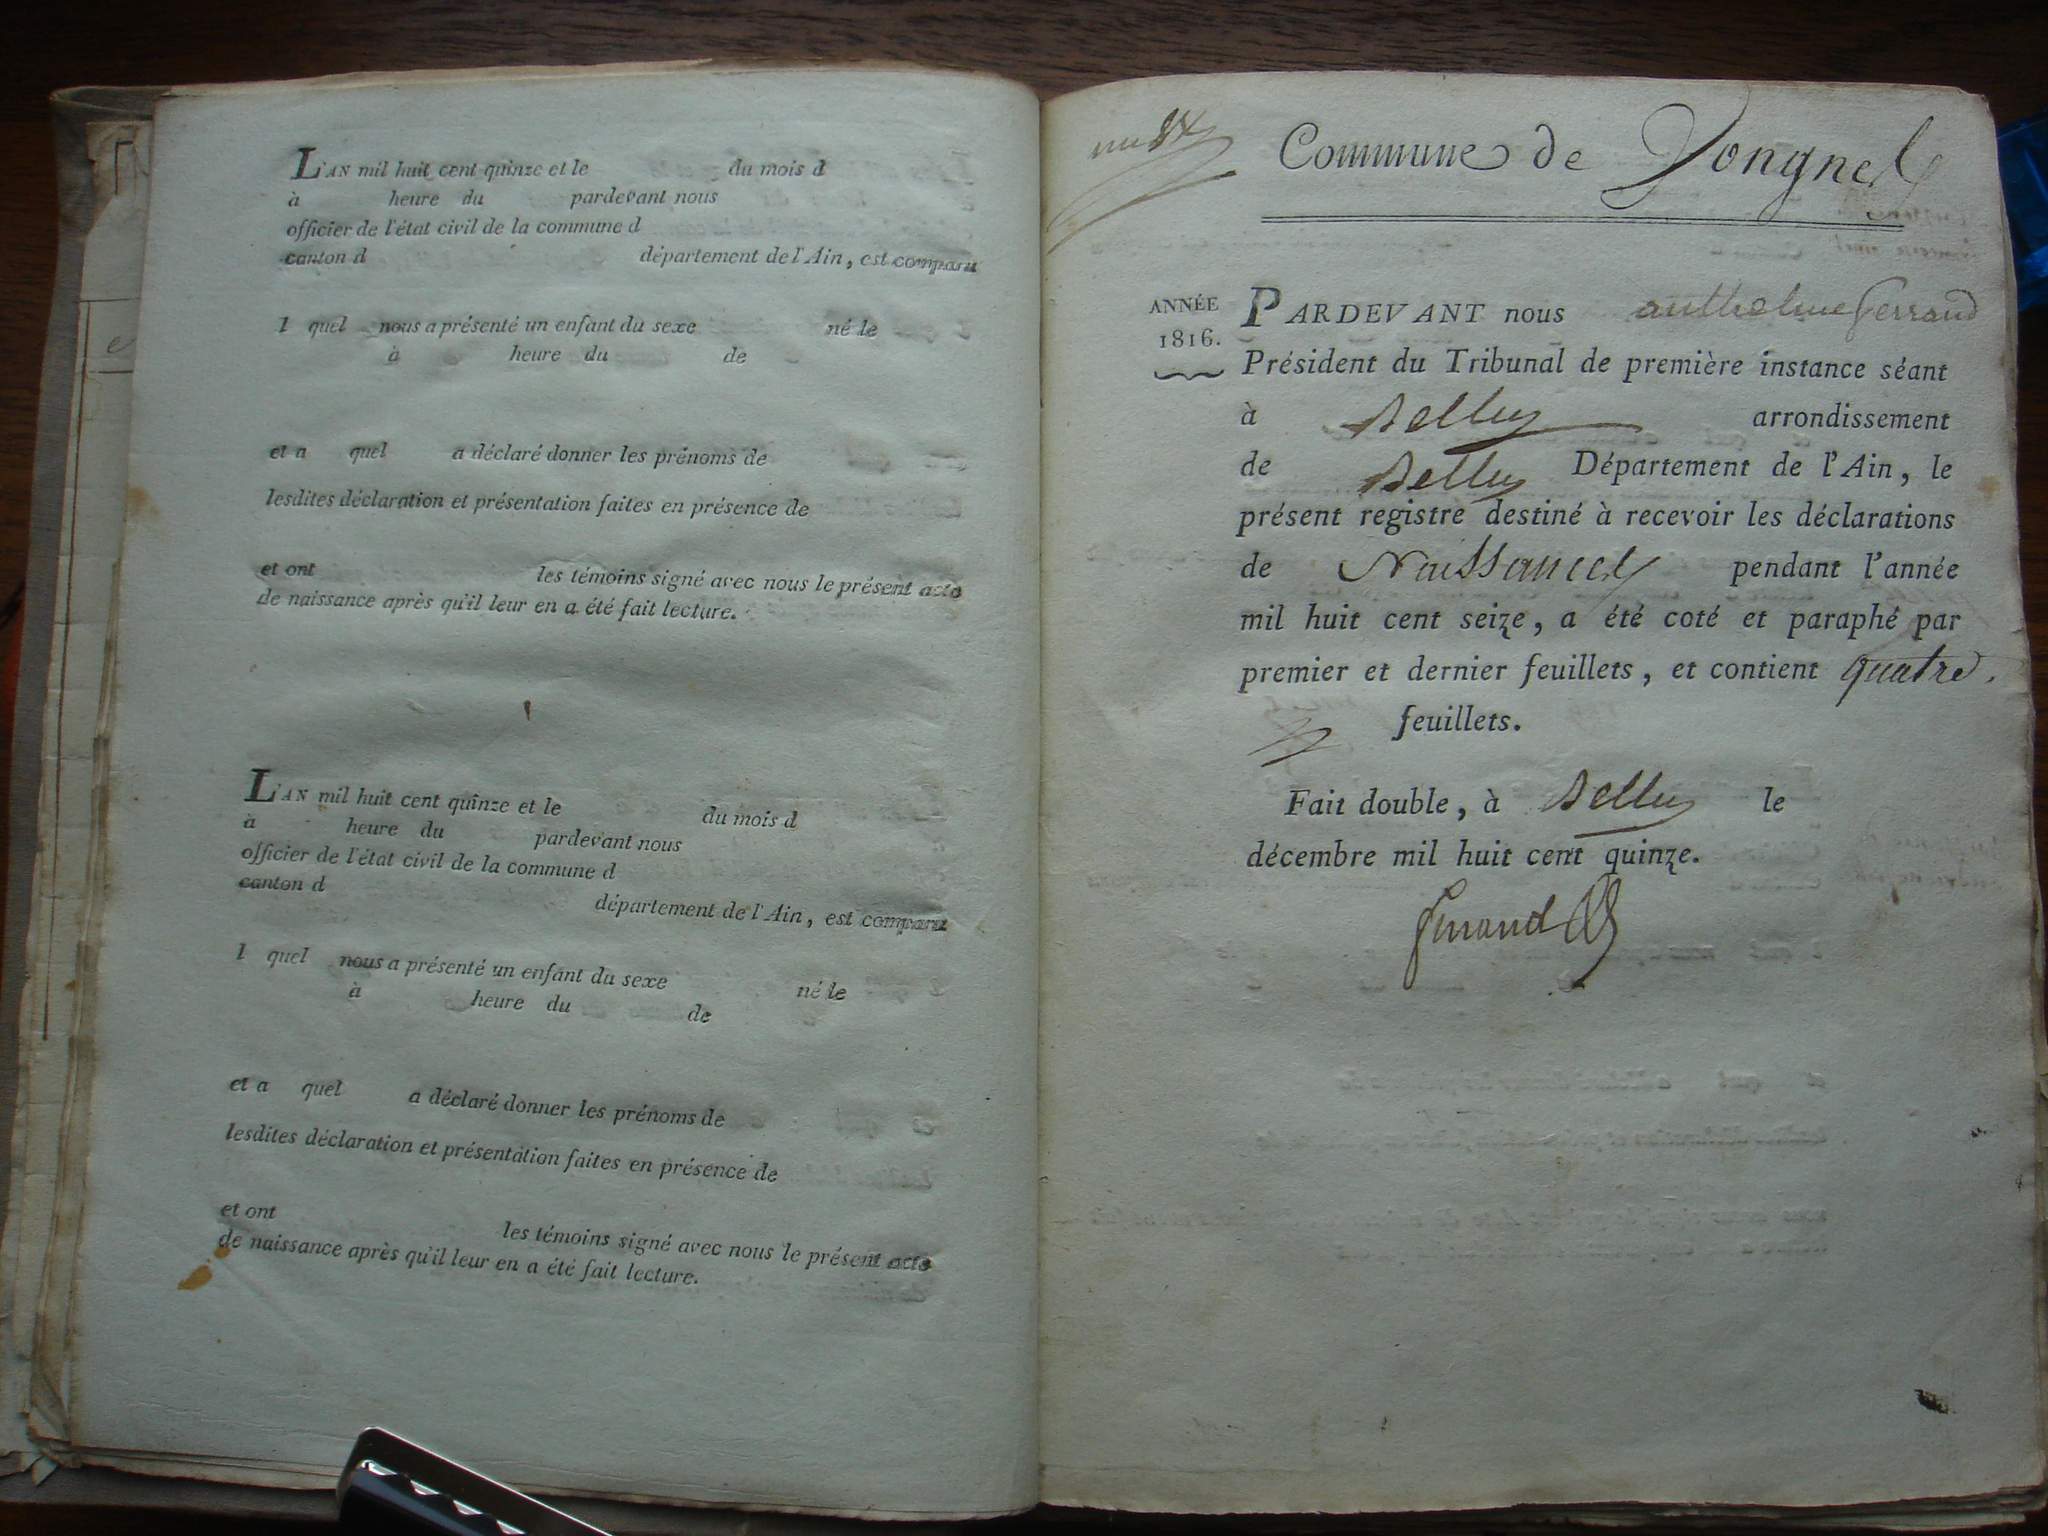 L'AN mil huit cent quinze et le du mois d
à heure du pardevant nous
officier de l'état civil de la commune d
canton d département de l'Ain, est comparu
l quel nous a présenté un enfant du sexe né le
à heure du de
et a quel a déclaré donner les prénoms de
lesdites déclaration et présentation faites en présence de
et ont les témoins signé avec nous le présent acte
de naissance après qu'il leur en a été fait lecture.
L'AN mil huit cent quinze et le du mois d
à heure du pardevant nous
officier de l'état civil de la commune d
canton d département de l'Ain, est comparu
l quel nous a présenté un enfant du sexe né le
à heure du de
et a quel a déclaré donner les prénoms de
lesdites déclaration et présentation faites en présence de
et ont les témoins signé avec nous le présent acte
de naissance après qu'il leur en a été fait lecture.
Commune de Vongnes
ANNÉE
1816.
PARDEVANT nous anthelme ferrand
Président du Tribunal de première instance séant
à Belley arrondissement
de Belley Département de l'Ain, le
présent registre destiné à recevoir les déclarations
de Naissances pendant l'année
mil huit cent seize, a été coté et paraphé par
premier et dernier feuillets, et contient quatre
feuillets.
Fait double, à Belley le
décembre mil huit cent quinze.